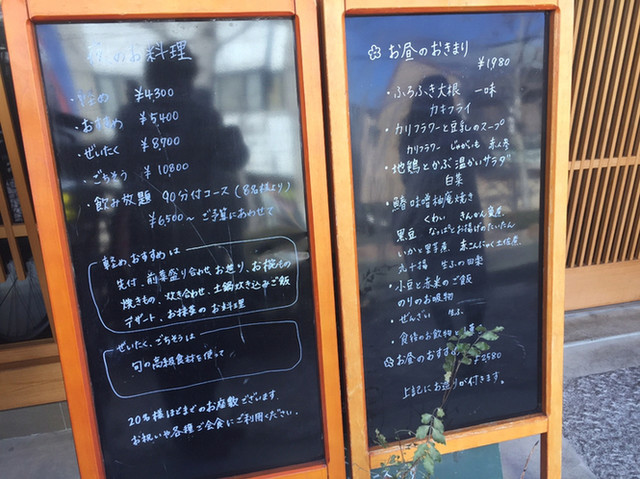 のお料理
¥4,300
・おすすめ ¥5400
・ぜいたく ¥8,700
・ごちそう ¥10800
・飲み放題 90分付コース(8名様より)
¥6,500〜ご予算にあわせて
おすすめは
先付、前菜盛り合わせ、お造り、お椀もの
焼きもの、炊き合わせ、土鍋炊き込みご飯
デザート、お抹茶のお料理
ぜいたく、ごちそうは
旬の高級食材を使って
20名様ほどまでのお座敷ございます。
お祝いや各種ご会食にご利用ください。
お昼のおきまり
¥1980
・ふろふき大根 一味
カキフライ
・カリフラワーと豆乳のスープ
カリフラワー じゃがいも 赤人参
・地鶏とかぶ温かいサラダ
白菜
・鰆味噌柚庵焼き
くわい きんかん蜜煮
黒豆 なっぱとお揚げのたいたん
いかと里芋煮 赤こんにゃく土佐煮
丸十揚 生ふ田楽
・小豆と赤米のご飯
のりのお吸物
・ぜんざい 生ふ
・食後のお飲物
お昼のおすすめ ¥2580
上記にお造りが付きます。